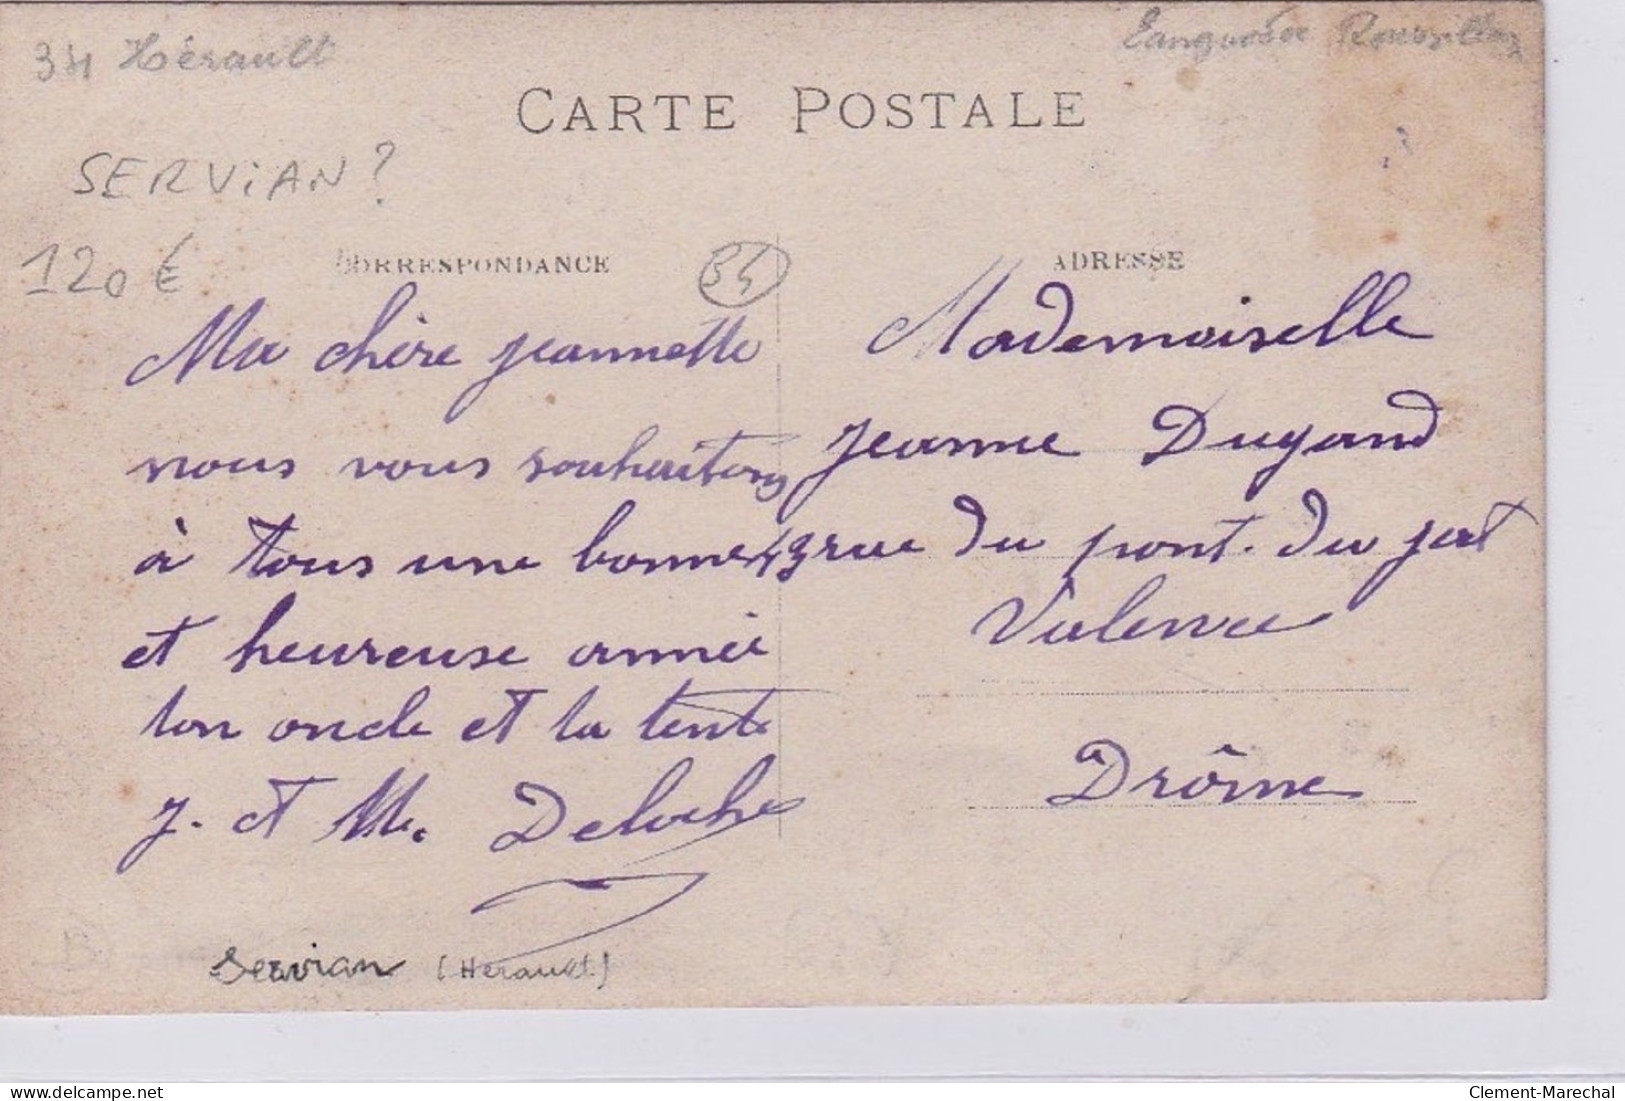 34 Hérault
Languedoc Roussillon
CARTE POSTALE
SERViAN ?
120 €
CORRESPONDANCE
34
ADRESSE
Ma chère jeannette
nous vous souhaitons
à tous une bonne
et heureuse année
ton oncle et ta tente
J. et M. Deloche
Servian (Hérault)
Mademoiselle
Jeanne Dugand
43 rue du pont. du jat
Valence
Drôme
delcampe.net
Clement-Marechal